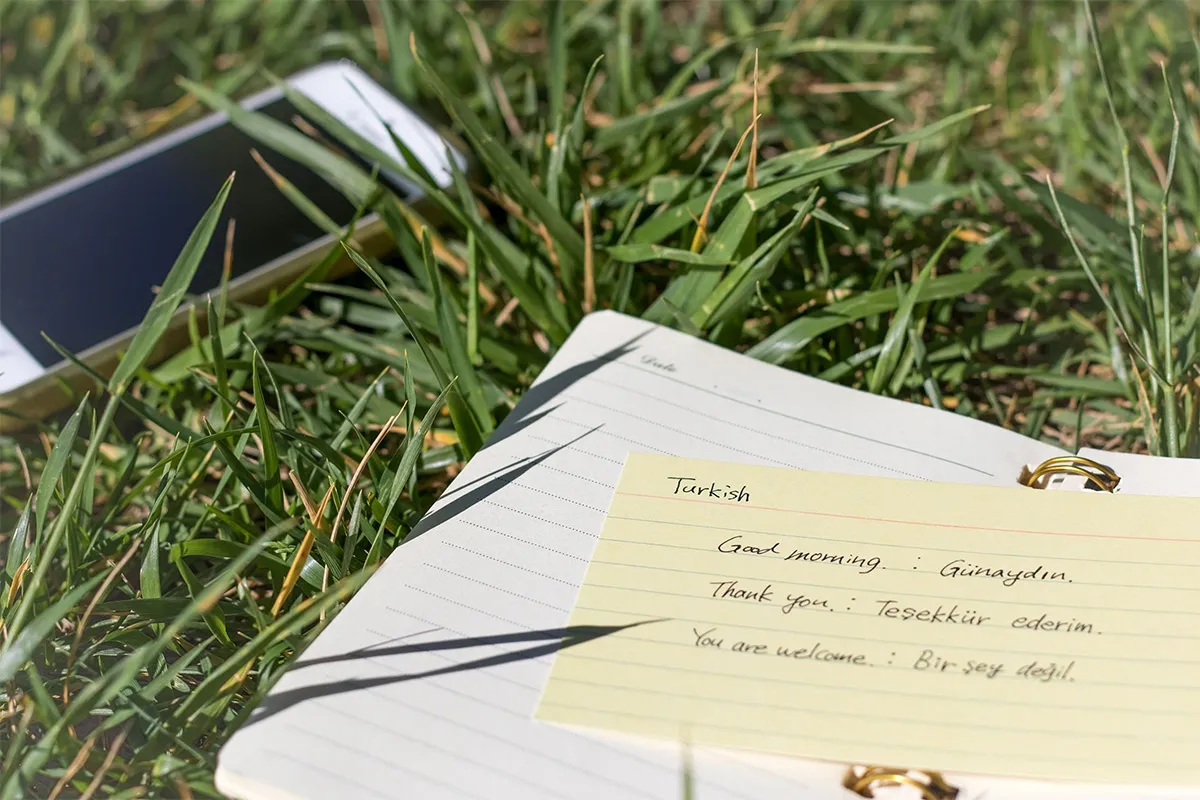 Date
Turkish
Good morning. : Günaydın.
Thank you. : Teşekkür ederim.
You are welcome. : Bir şey değil.